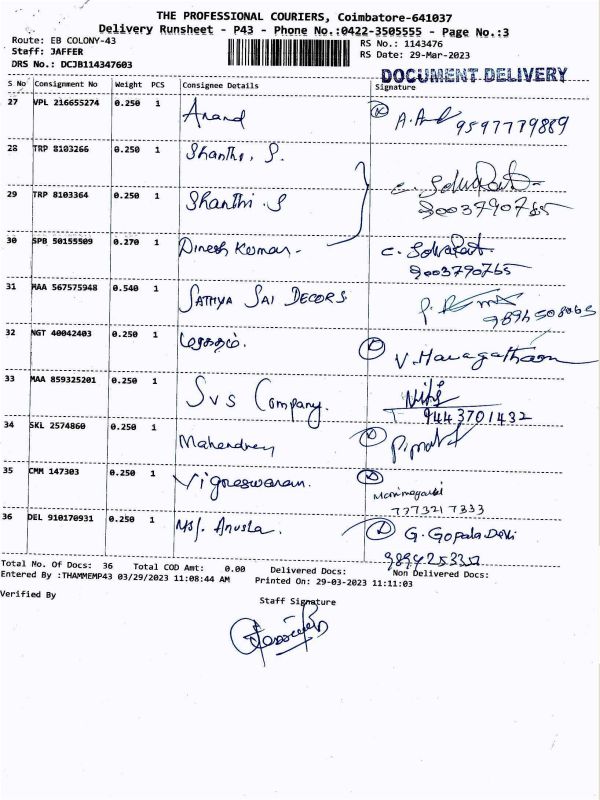 THE PROFESSIONAL COURIERS, Coimbatore-641037
Delivery Runsheet - P43 - Phone No.:0422-3505555 - Page No.:3
Route: EB COLONY-43 RS No.: 1143476
Staff: JAFFER RS Date: 29-Mar-2023
DRS No.: DCJB114347603
DOCUMENT DELIVERY
S No Consignment No Weight PCS Consignee Details Signature
27 VPL 216655274 0.250 1 Anand 9597779889
28 TRP 8103266 0.250 1 Shanthi. S.
29 TRP 8103364 0.250 1 Shanthi .S 9003790765
30 SPB 50155509 0.270 1 Dinesh Kumar. 9003790765
31 MAA 567575948 0.540 1 SATHYA SAI DECORS
32 NGT 40042403 0.250 1
33 MAA 859325201 0.250 1 SVS Company. 9443701432
34 SKL 2574860 0.250 1 Mahendren
35 CMM 147303 0.250 1 Vigneswaran. 7373217333
36 DEL 910170931 0.250 1 G. Gopala Devi
Total No. Of Docs: 36 Total COD Amt: 0.00 Delivered Docs: Non Delivered Docs:
Entered By :THAMMEMP43 03/29/2023 11:08:44 AM Printed On: 29-03-2023 11:11:03
Verified By Staff Signature